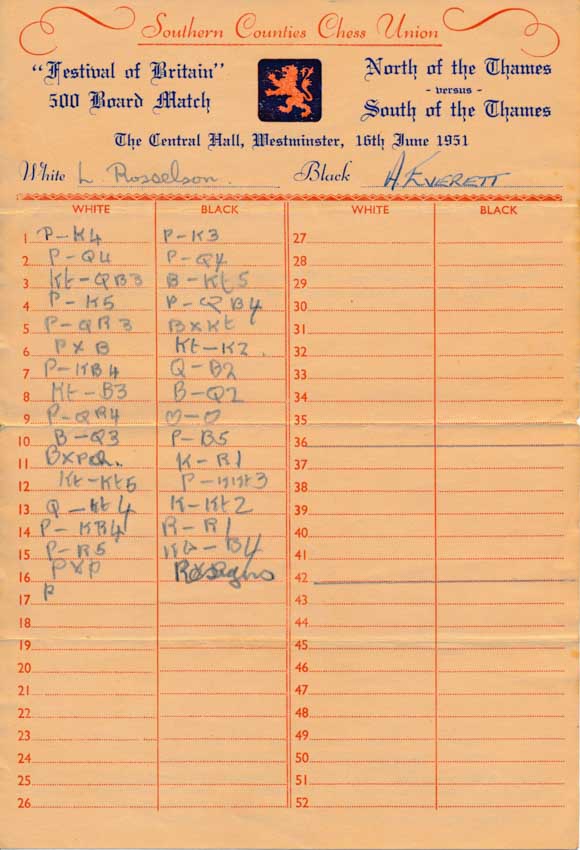 Southern Counties Chess Union
"Festival of Britain"
500 Board Match
North of the Thames
- versus -
South of the Thames
The Central Hall, Westminster, 16th June 1951
White L Rosselson. Black A EVERETT
WHITE BLACK WHITE BLACK
1 P-K4 P-K3 27
2 P-Q4 P-Q4 28
3 Kt-QB3 B-Kt5 29
4 P-K5 P-QB4 30
5 P-QR3 BxKt 31
6 PxB Kt-K2. 32
7 P-KB4 Q-B2 33
8 Kt-B3 B-Q2 34
9 P-QR4 O-O 35
10 B-Q3 P-B5 36
11 BxPch. K-R1 37
12 Kt-Kt5 P-KKt3 38
13 Q-Kt4 K-Kt2 39
14 P-KR4 R-R1 40
15 P-R5 Kt-B4 41
16 PxP Resigns 42
17 P 43
18 44
19 45
20 46
21 47
22 48
23 49
24 50
25 51
26 52